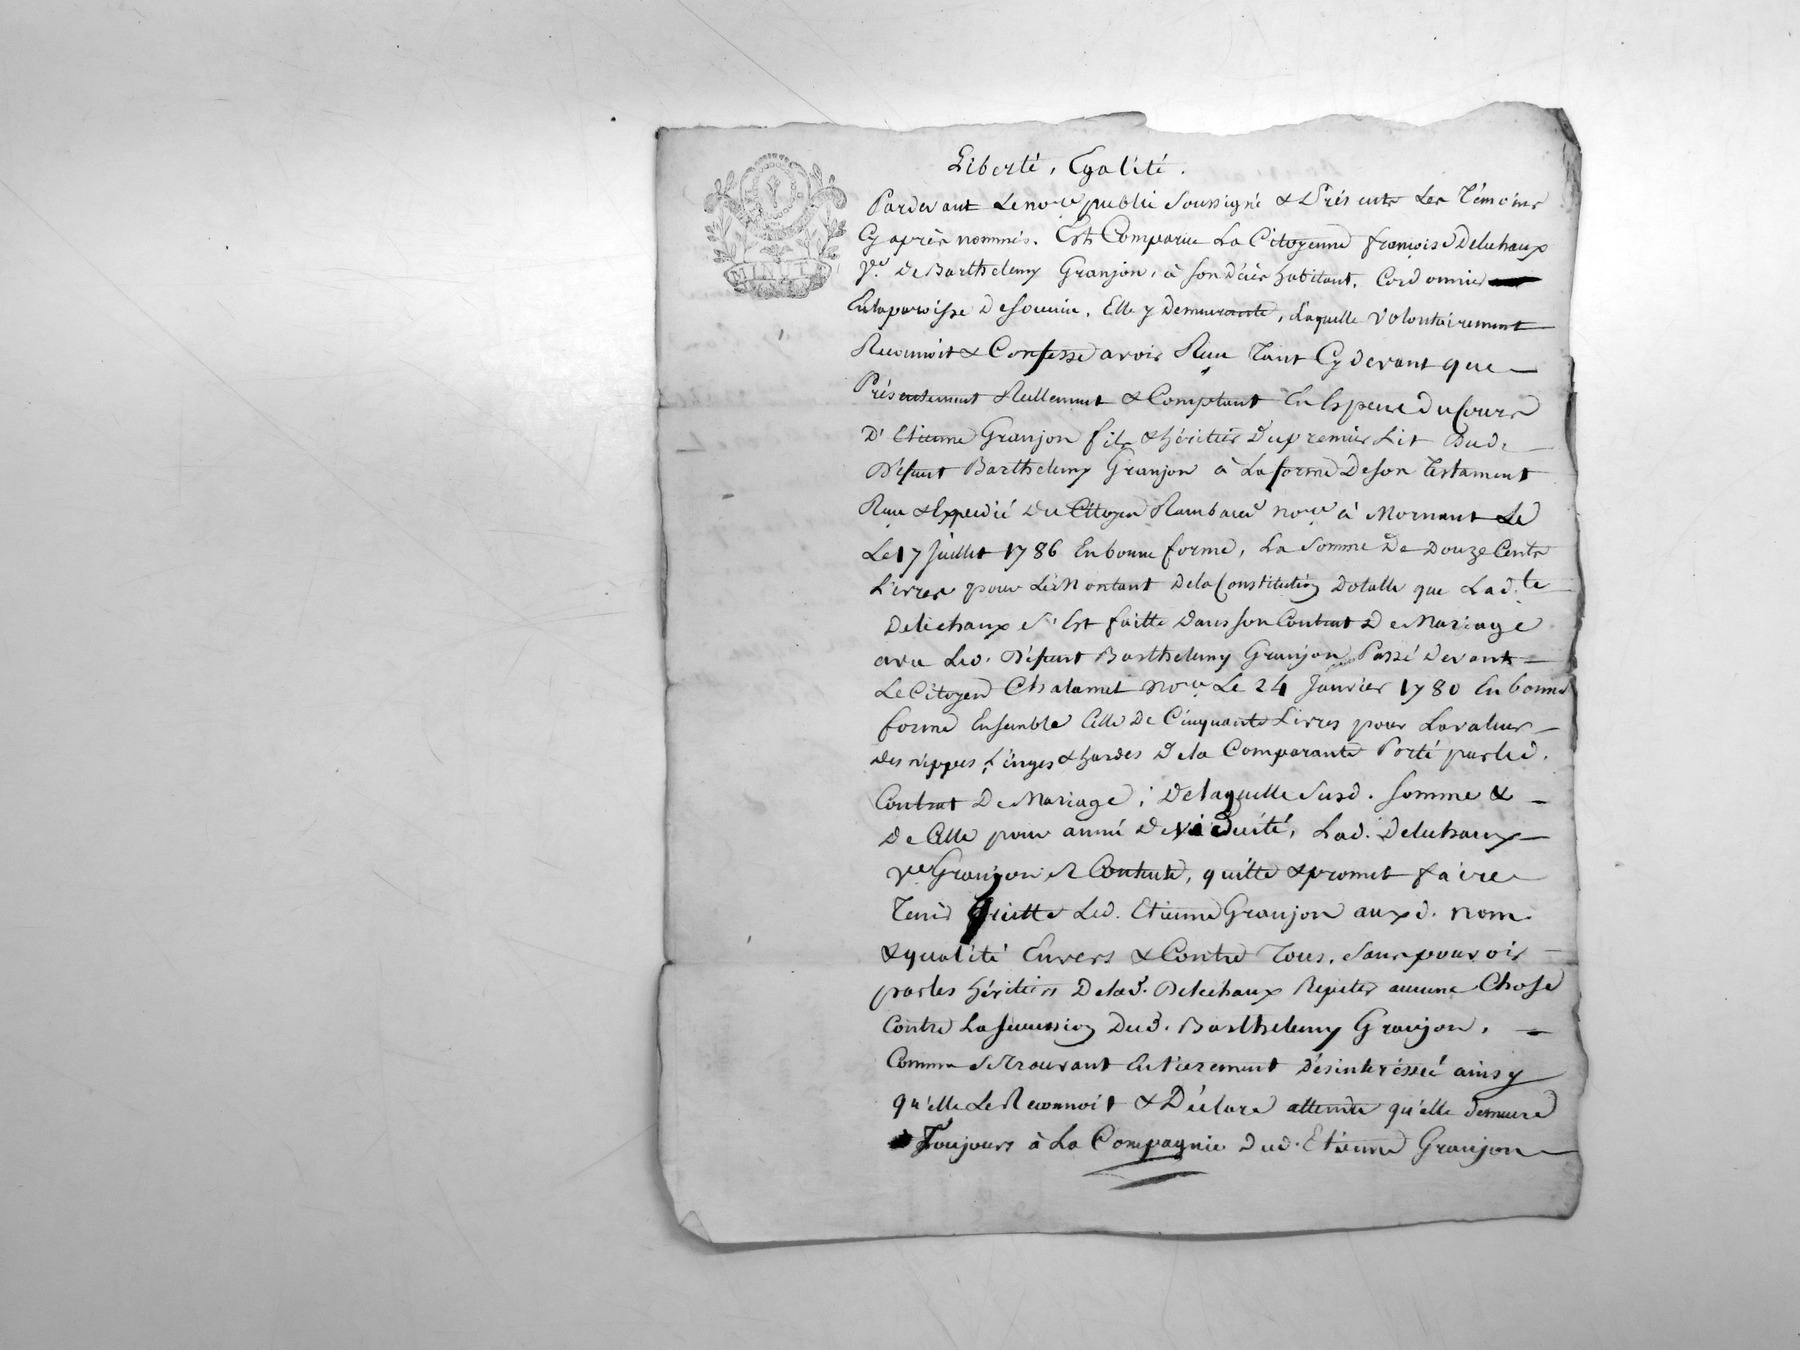 Liberté, Egalité.
MINUTE
Pardevant Le no.re public Soussigné & Présents Les Témoins
Cy après nommés. Est Comparue La Citoyenne françoise Delechaux
V.e De Barthelemy Granjon, à son décès habitant, Cordonnier
En la paroisse De Soucieu, Elle y Demeurante, Laquelle volontairement
Reconnoit & Confesse avoir Reçu Tant Cy devant que
Présentement Réellement & Comptant En Espece du Cours
D'Etienne Granjon fils & héritier Du premier Lit Dud.
Défunt Barthelemy Granjon à La forme De son Testament
Reçu & Expedié Du Citoyen Rambaud no.re à Mornant Le
Le 17 Juillet 1786 En bonne forme, La Somme De Douze Cents
Livres pour Le Montant De la Constitution Dotalle que Lad.te
Delechaux S'Est faitte Dans son Contrat De Mariage
avec Led. Défunt Barthelemy Granjon Passé Devant
Le Citoyen Chalamel no.re Le 24 Janvier 1780 En bonne
forme Ensemble Celle De Cinquante Livres pour La valeur
Des nippes, Linges & hardes De la Comparante Porté par led.
Contrat De Mariage; De laquelle Susd. Somme &
De Celle pour année De viduité, Lad. Delechaux
V.e Granjon se Contente, quitte & promet faire
Tenir Quitte Led. Etienne Granjon auxd. nom
& qualité Envers & Contre Tous, Sans pouvoir
par les héritiers De lad. Delechaux Repéter aucune Chose
Contre La Succession Dud. Barthelemy Granjon,
Comme Se Trouvant Entierement Désintéressée ainsy
qu'elle Le Reconnoit & Déclare attendu qu'elle demeure
Toujours à La Compagnie Dud. Etienne Granjon